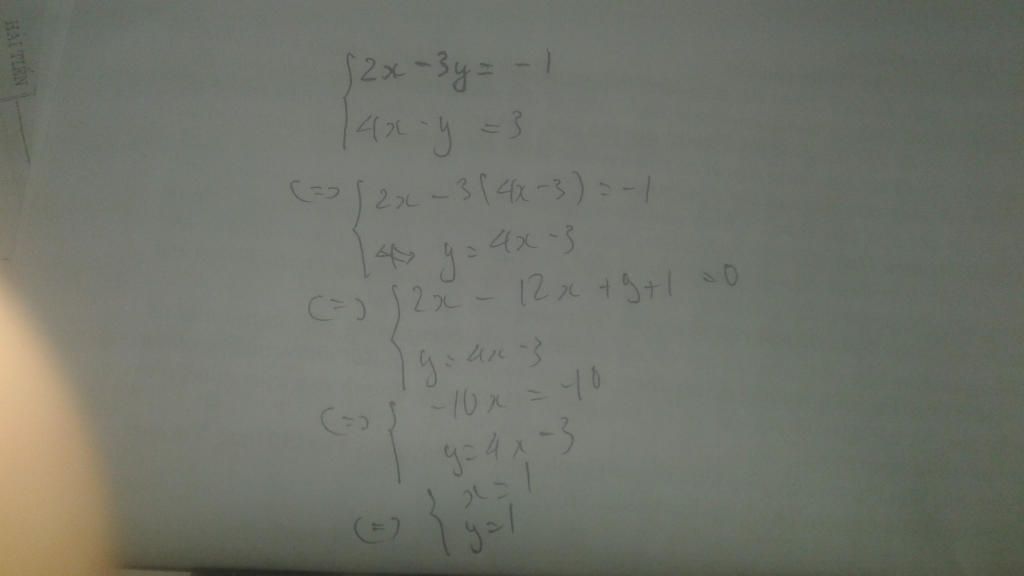 HAI TIẾN
{ 2x - 3y = -1
4x - y = 3
(=) { 2x - 3(4x-3) = -1
y = 4x - 3
(=) { 2x - 12x + 9 + 1 = 0
y = 4x - 3
(=) { -10x = -10
y = 4x - 3
(=) { x = 1
y = 1